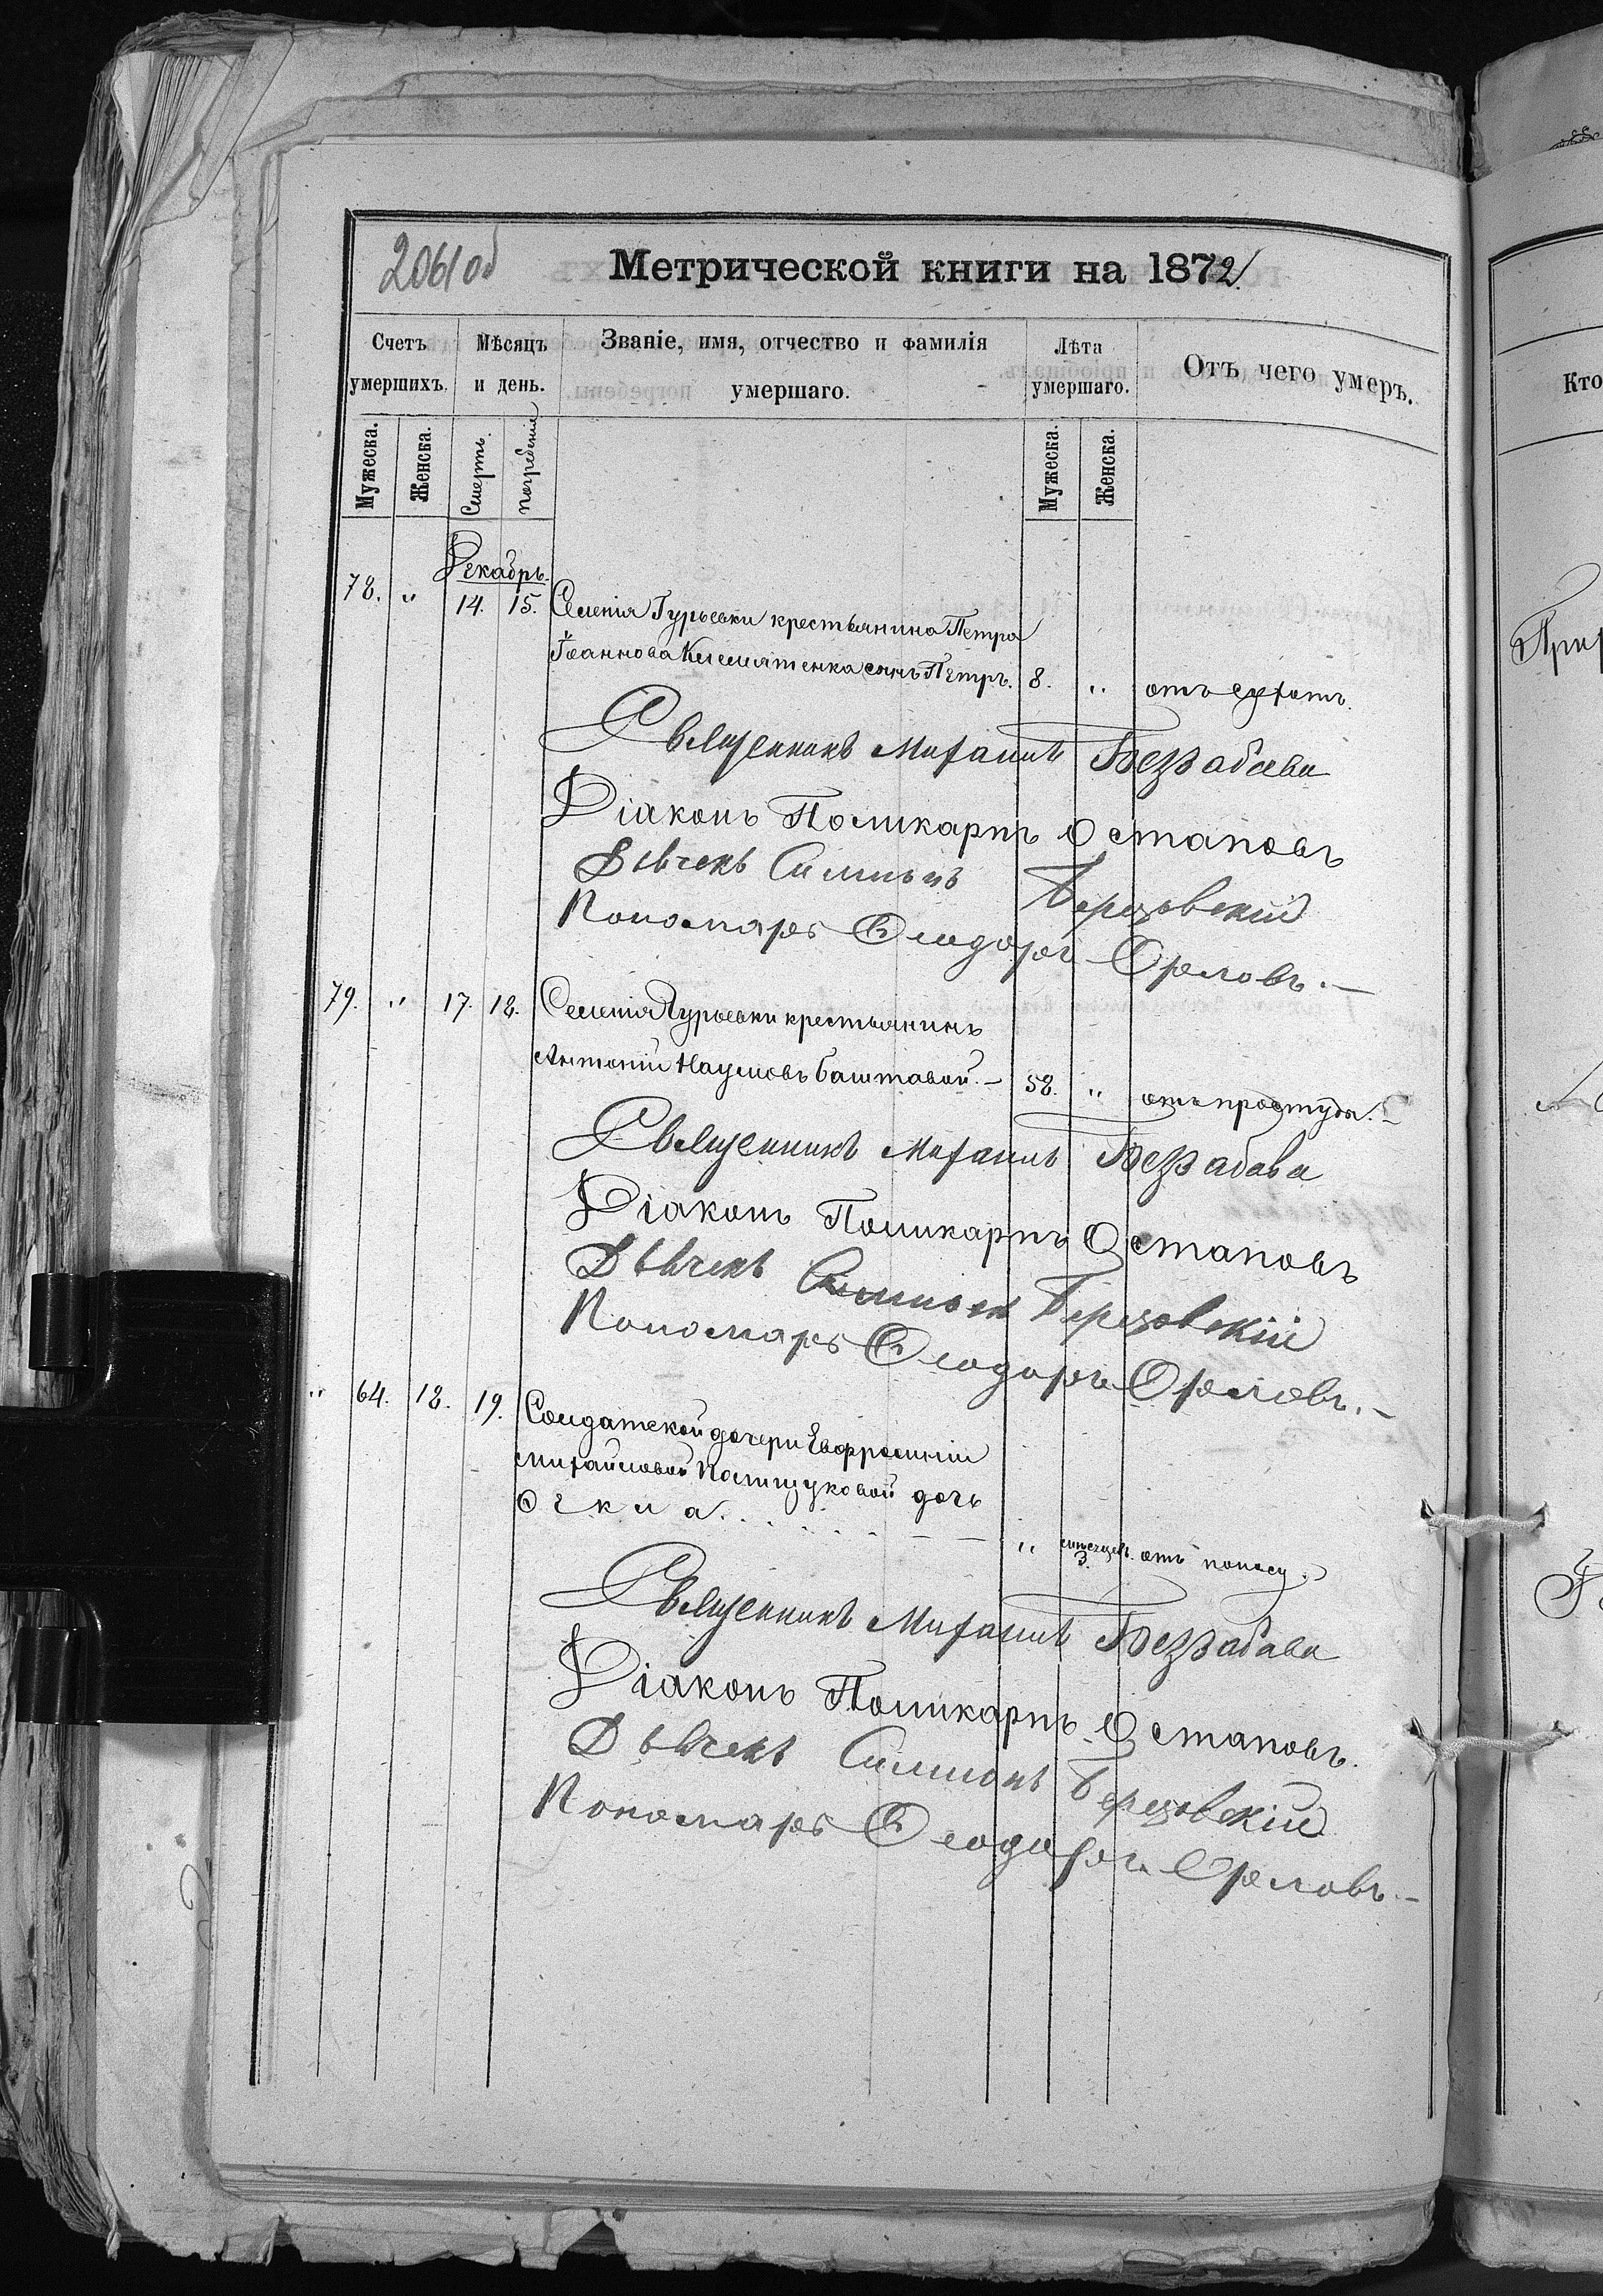 2061 об
Метрической книги на 1872.
Счетъ умершихъ.
Мѣсяцъ и день.
Званіе, имя, отчество и фамилія умершаго.
Лѣта умершаго.
Отъ чего умеръ.
Кто
Мужеска.
Женска.
Смерть.
погребеніе
Мужеска.
Женска.
Декабрь.
78. " 14. 15. Селенія Гурьевки крестьянина Петра
Іоаннова сынъ Петръ. 8. " отъ сухотъ.
Священникъ Михаилъ Беззабава
Діаконъ Поликарпъ Остаповъ
Дьячекъ Симеонъ Березовскій
Пономарь Ѳеодоръ Орловъ.-
79. " 17. 18. Селенія Гурьевки крестьянинъ
Антоній Наумовъ Баштавой.- 58. " отъ простуды.-
Священникъ Михаилъ Беззабава
Діаконъ Поликарпъ Остаповъ
Дьячекъ Симеонъ Березовскій
Пономарь Ѳеодоръ Орловъ.-
" 64. 18. 19. Солдатской дочери Евфросиніи
Михайловой Полищуковой дочь
Ѳекла. " 3. отъ поносу.
Священникъ Михаилъ Беззабава
Діаконъ Поликарпъ Остаповъ.
Дьячекъ Симеонъ Березовскій
Пономарь Ѳеодоръ Орловъ.-